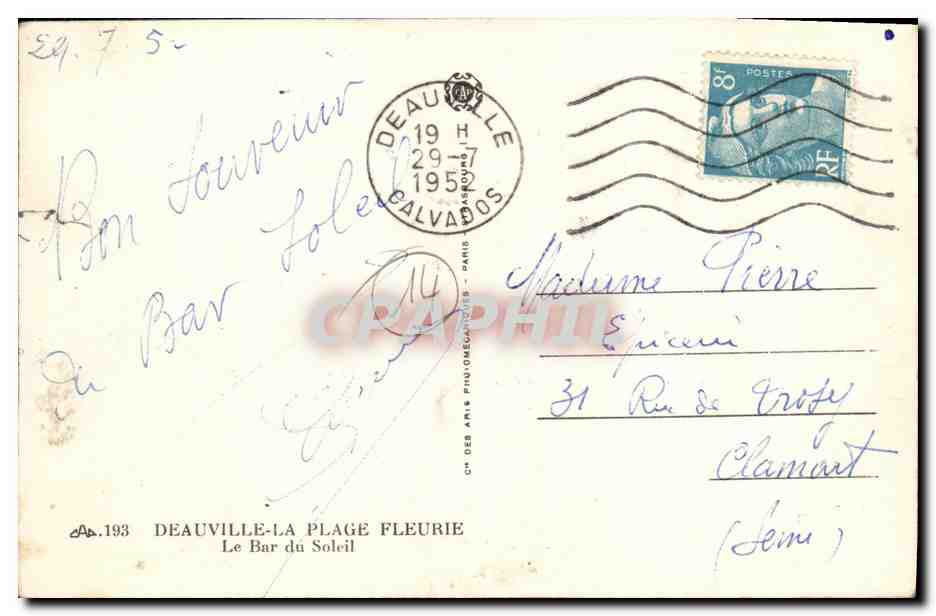 29.7.5-
Bon Souvenir
du Bar Soleil
14
DEAUVILLE
19 H
29-7
1952
CALVADOS
8F
POSTES
RF
Cie DES ARTS PHOTOMECANIQUES - PARIS - STRASBOURG
CAP
Madame Pierre
Epicerie
31 Rue de Trosy
Clamart
(Seine)
CPAPHIL
CAP.193 DEAUVILLE-LA PLAGE FLEURIE
Le Bar du Soleil